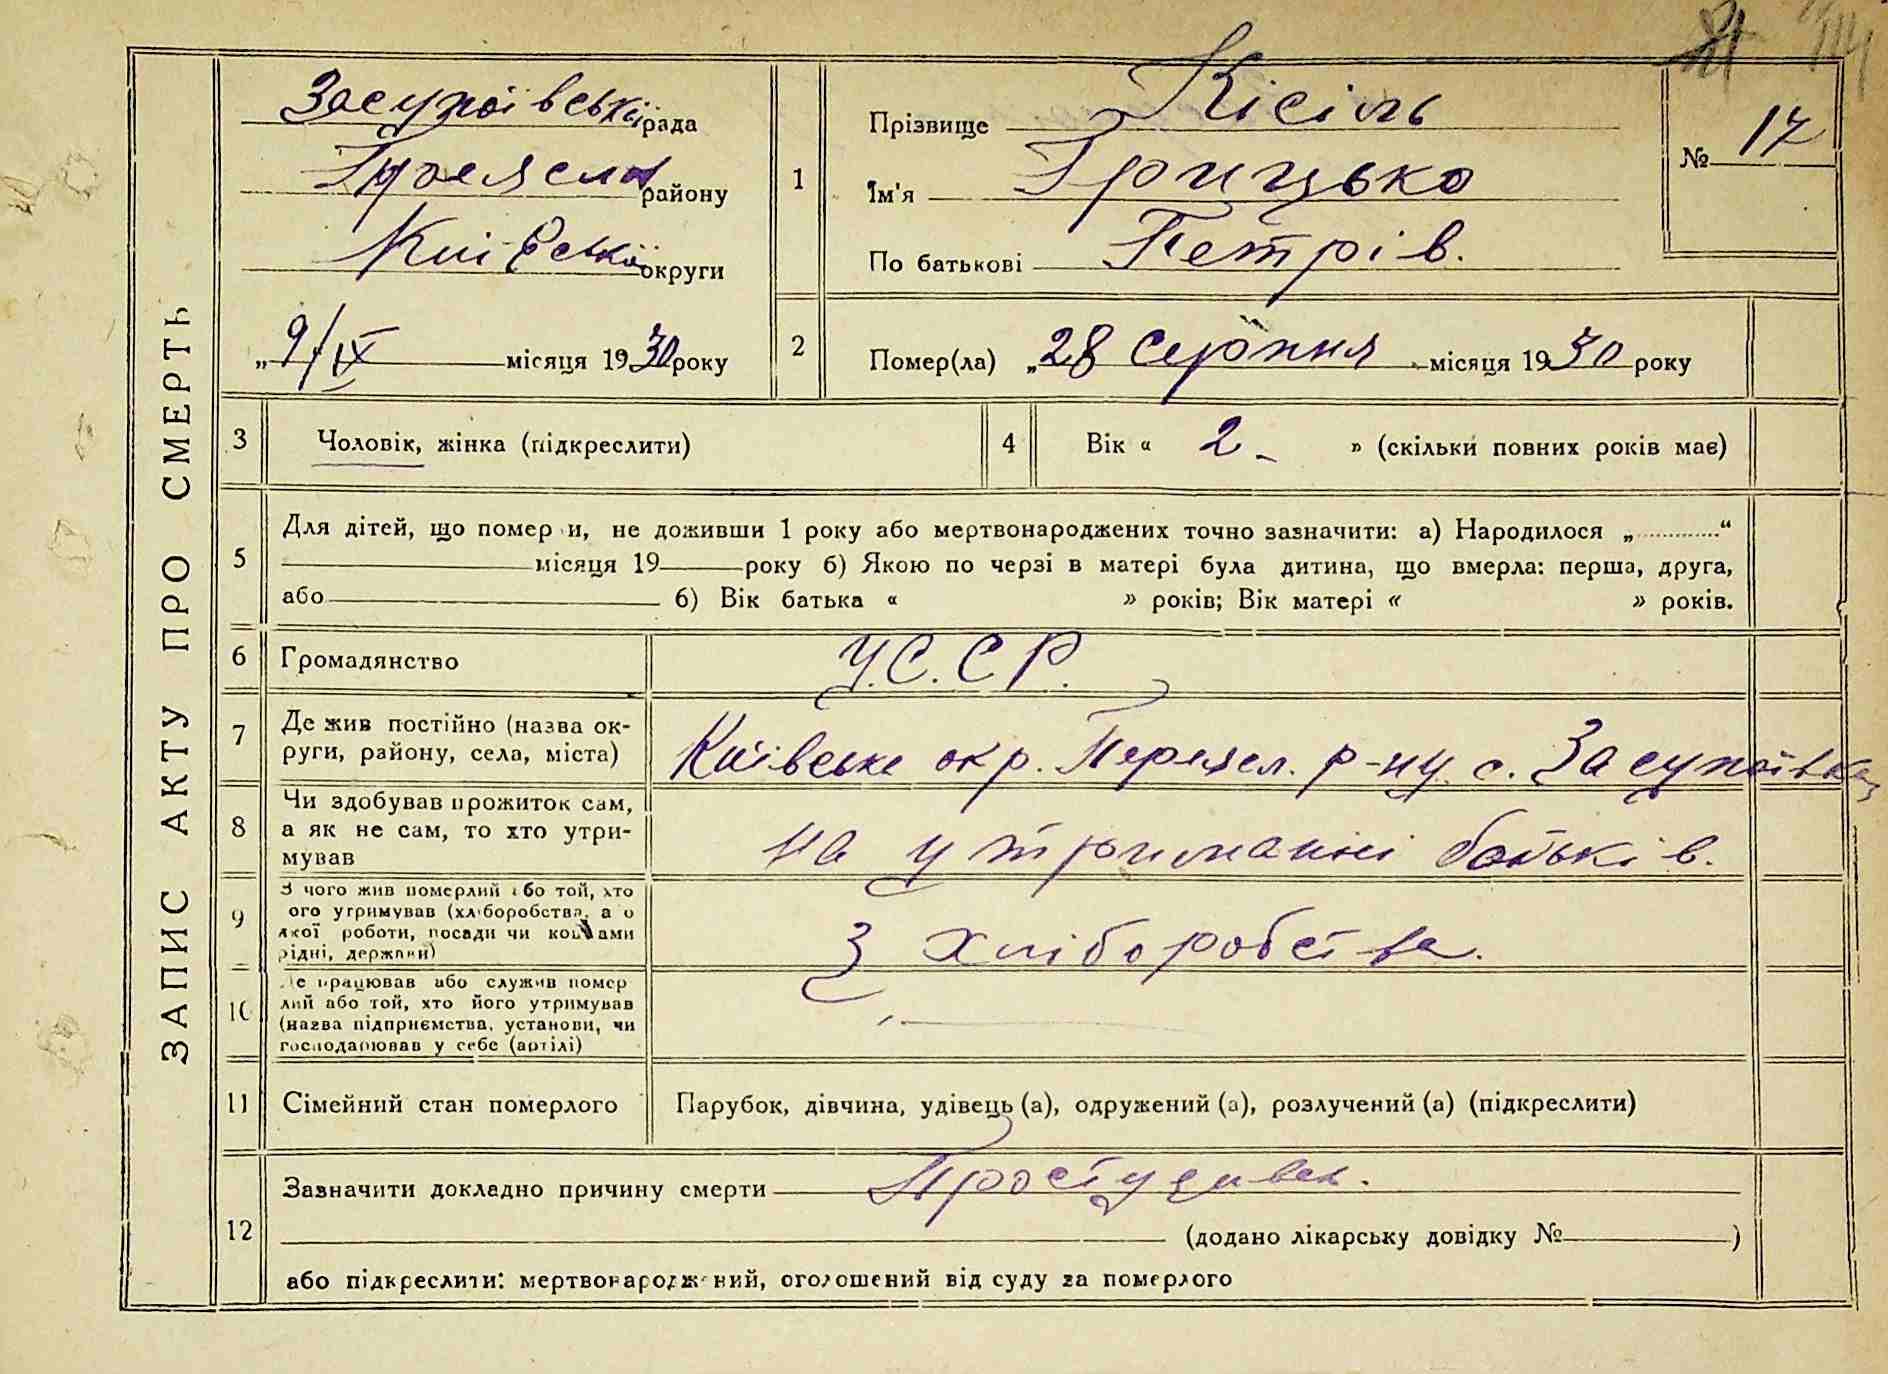 ЗАПИС АКТУ ПРО СМЕРТЬ
Засупоївська рада
району
Київської округи
„ 9/IX місяця 1930 року
1
Прізвище Кісіль
Ім'я Грицько
По батькові Петрів.
№ 17
2
Помер(ла) „28 серпня місяця 1930 року
3
Чоловік, жінка (підкреслити)
4
Вік « 2 - » (скільки повних років має)
5
Для дітей, що померли, не доживши 1 року або мертвонароджених точно зазначити: а) Народилося „............“
місяця 19 року б) Якою по черзі в матері була дитина, що вмерла: перша, друга,
або б) Вік батька « » років; Вік матері « » років.
6
Громадянство
У.С.С.Р.
7
Де жив постійно (назва ок-
руги, району, села, міста)
Київське окр. Переясл. р-ну. с. Засупоївка
8
Чи здобував прожиток сам,
а як не сам, то хто утри-
мував
на утриманні батьків.
9
З чого жив померлий або той, хто
ого утримував (хліборобства, а о
якої роботи, посади чи коштами
рідні, держави)
З хліборобства.
10
Де працював або служив помер
лий або той, хто його утримував
(назва підприємства, установи, чи
господарював у себе (артілі)
11
Сімейний стан померлого
Парубок, дівчина, удівець (а), одружений (а), розлучений (а) (підкреслити)
12
Зазначити докладно причину смерти Простудився.
(додано лікарську довідку № )
або підкреслити: мертвонароджений, оголошений від суду за померлого